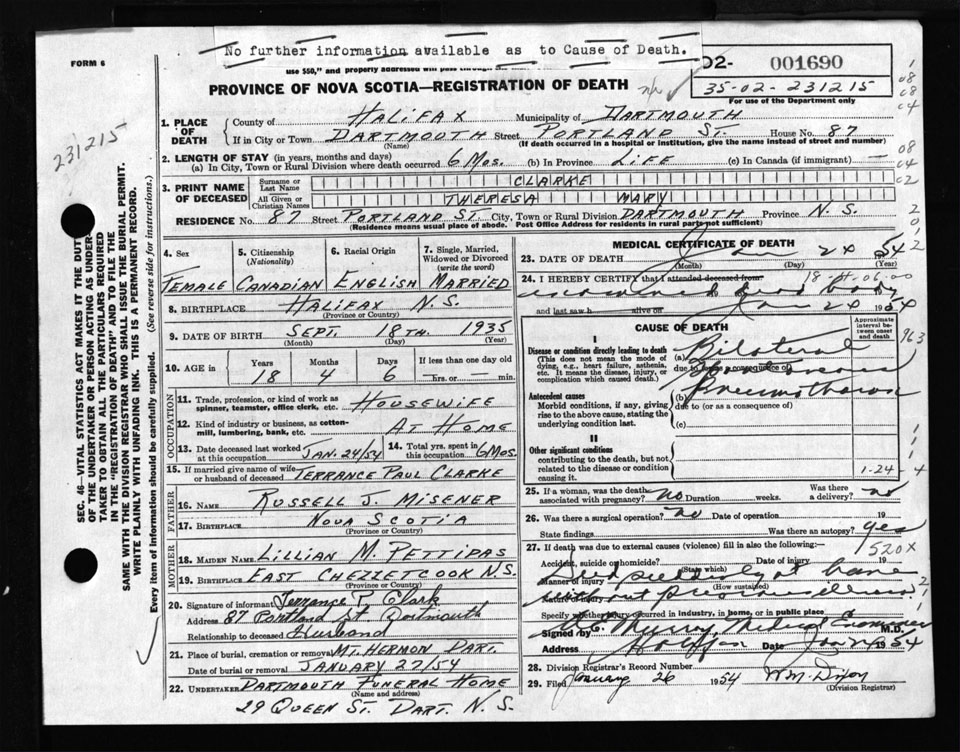 No further information available as to Cause of Death.
FORM 6
use $50," and properly addressed will pass through the
02- 001690
35-02-231215
For use of the Department only
PROVINCE OF NOVA SCOTIA—REGISTRATION OF DEATH
231215
SEC. 46—VITAL STATISTICS ACT MAKES IT THE DUTY
OF THE UNDERTAKER OR PERSON ACTING AS UNDER-
TAKER TO OBTAIN ALL THE PARTICULARS REQUIRED
IN THE "REGISTRATION OF DEATH" AND TO FILE THE
SAME WITH THE DIVISION REGISTRAR WHO SHALL ISSUE THE BURIAL PERMIT.
WRITE PLAINLY WITH UNFADING INK. THIS IS A PERMANENT RECORD.
Every item of information should be carefully supplied. (See reverse side for instructions.)
1. PLACE OF DEATH County of HALIFAX Municipality of DARTMOUTH
If in City or Town DARTMOUTH Street PORTLAND ST. House No. 87
(Name) (If death occurred in a hospital or institution, give the name instead of street and number)
2. LENGTH OF STAY (in years, months and days)
(a) In City, Town or Rural Division where death occurred 6 MOS. (b) In Province LIFE (c) In Canada (if immigrant) —
3. PRINT NAME OF DECEASED Surname or Last Name CLARKE
All Given or Christian Names THERESA MARY
RESIDENCE No. 87 Street PORTLAND ST. City, Town or Rural Division DARTMOUTH Province N.S.
(Residence means usual place of abode. Post Office Address for residents in rural parts not sufficient)
4. Sex 5. Citizenship (Nationality) 6. Racial Origin 7. Single, Married, Widowed or Divorced (write the word)
FEMALE CANADIAN ENGLISH MARRIED
8. BIRTHPLACE HALIFAX N.S.
(Province or Country)
9. DATE OF BIRTH SEPT. 18TH. 1935
(Month) (Day) (Year)
10. AGE in Years Months Days If less than one day
18 4 6 hrs. or min.
OCCUPATION
11. Trade, profession, or kind of work as spinner, teamster, office clerk, etc. HOUSEWIFE
12. Kind of industry or business, as cotton-mill, lumbering, bank, etc. AT HOME
13. Date deceased last worked at this occupation JAN. 24/54 14. Total yrs. spent in this occupation 6 MOS.
15. If married give name of wife or husband of deceased TERRANCE PAUL CLARKE
FATHER
16. NAME RUSSELL J. MISENER
17. BIRTHPLACE NOVA SCOTIA
(Province or Country)
MOTHER
18. MAIDEN NAME LILLIAN M. PETTIPAS
19. BIRTHPLACE EAST CHEZZETCOOK N.S.
(Province or Country)
20. Signature of informant Terrance P Clark
Address 87 Portland St. Dartmouth
Relationship to deceased Husband
21. Place of burial, cremation or removal MT. HERMON DART.
Date of burial or removal JANUARY 27/54
22. UNDERTAKER DARTMOUTH FUNERAL HOME
(Name and address)
29 QUEEN ST. DART. N.S.
MEDICAL CERTIFICATE OF DEATH
23. DATE OF DEATH Jan 24 1954
(Month) (Day) (Year)
24. I HEREBY CERTIFY that I attended deceased from
dead body
and last saw h alive on Jan 24 1954
CAUSE OF DEATH
Approximate interval between onset and death
I
Disease or condition directly leading to death
(This does not mean the mode of dying, e.g., heart failure, asthenia, etc. It means the disease, injury, or complication which caused death.)
(a) Bilateral
due to (or as a consequence of)
Antecedent causes
Morbid conditions, if any, giving rise to the above cause, stating the underlying condition last.
(b) Pneumothorax
due to (or as a consequence of)
(c)
II
Other significant conditions
contributing to the death, but not related to the disease or condition causing it.
1-24-
25. If a woman, was the death associated with pregnancy? no Duration weeks. Was there a delivery? no
26. Was there a surgical operation? no Date of operation 19
State findings Was there an autopsy? yes
27. If death was due to external causes (violence) fill in also the following:—
520X
Accident, suicide or homicide? Date of injury 19
(State which)
Manner of injury Died suddenly at home
(How sustained)
Nature of injury without previous illness
Specify whether injury occurred in industry, in home, or in public place
Signed by Murray Medical Examiner M.D.
Address Halifax Date 1954
28. Division Registrar's Record Number
29. Filed January 26 1954 Wm. Dixon
(Division Registrar)